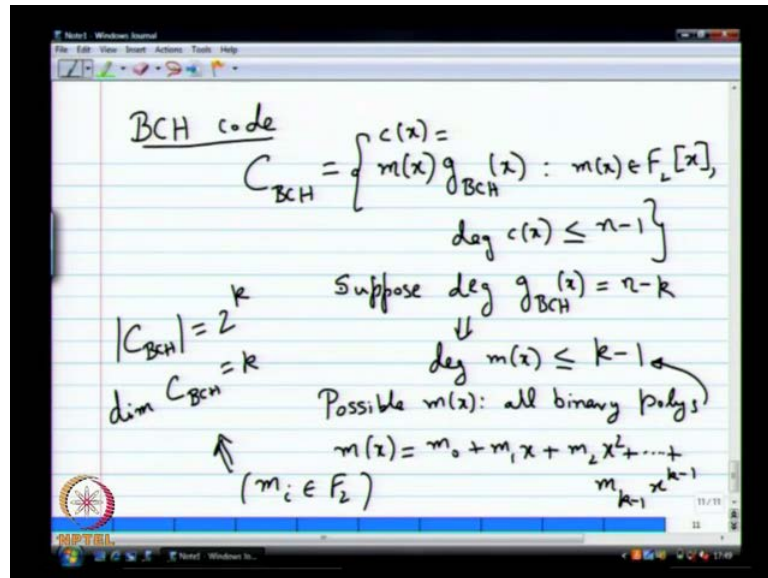 Note1 - Windows Journal
File Edit View Insert Actions Tools Help
BCH code
C_BCH = { c(x) = m(x) g_BCH(x) : m(x) ∈ F_2[x],
deg c(x) ≤ n-1 }
Suppose deg g_BCH(x) = n-k
⇓
|C_BCH| = 2^k
deg m(x) ≤ k-1
dim C_BCH = k
Possible m(x): all binary polys
m(x) = m_0 + m_1 x + m_2 x^2 + ... +
m_{k-1} x^{k-1}
(m_i ∈ F_2)
11 / 11
11
NPTEL
Note1 - Windows Jo...
17:49